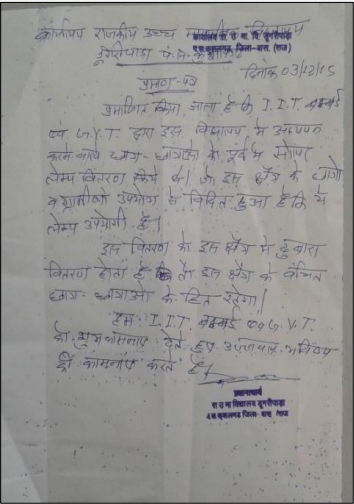 कार्यालय राजकीय उच्च माध्यमिक विद्यालय
डूंगरीपाड़ा पं.स. कुशलगढ़
दिनांक 03/12/15
प्रमाण-पत्र
प्रमाणित किया जाता है कि I.I.T बम्बई
एवं G.V.T. द्वारा इस विद्यालय में अध्ययन
करने वाले छात्र-छात्राओं को पूर्व में सोलर
लेम्प वितरण किये थे। जो इस क्षेत्र के छात्रों
व ग्रामीणों उपयोग से विदित हुआ है कि ये
लेम्प उपयोगी है।
इस वितरण को इस क्षेत्र में दुबारा
वितरण होता है तो इस क्षेत्र के वंचित
छात्र-छात्राओं के हित रहेगा।
हम I.I.T बम्बई G.V.T.
को शुभकामनाएं देते हुए भविष्य
की कामनाएं करते है।
प्रधानाचार्य
रा उ मा विद्यालय डूंगरीपाड़ा